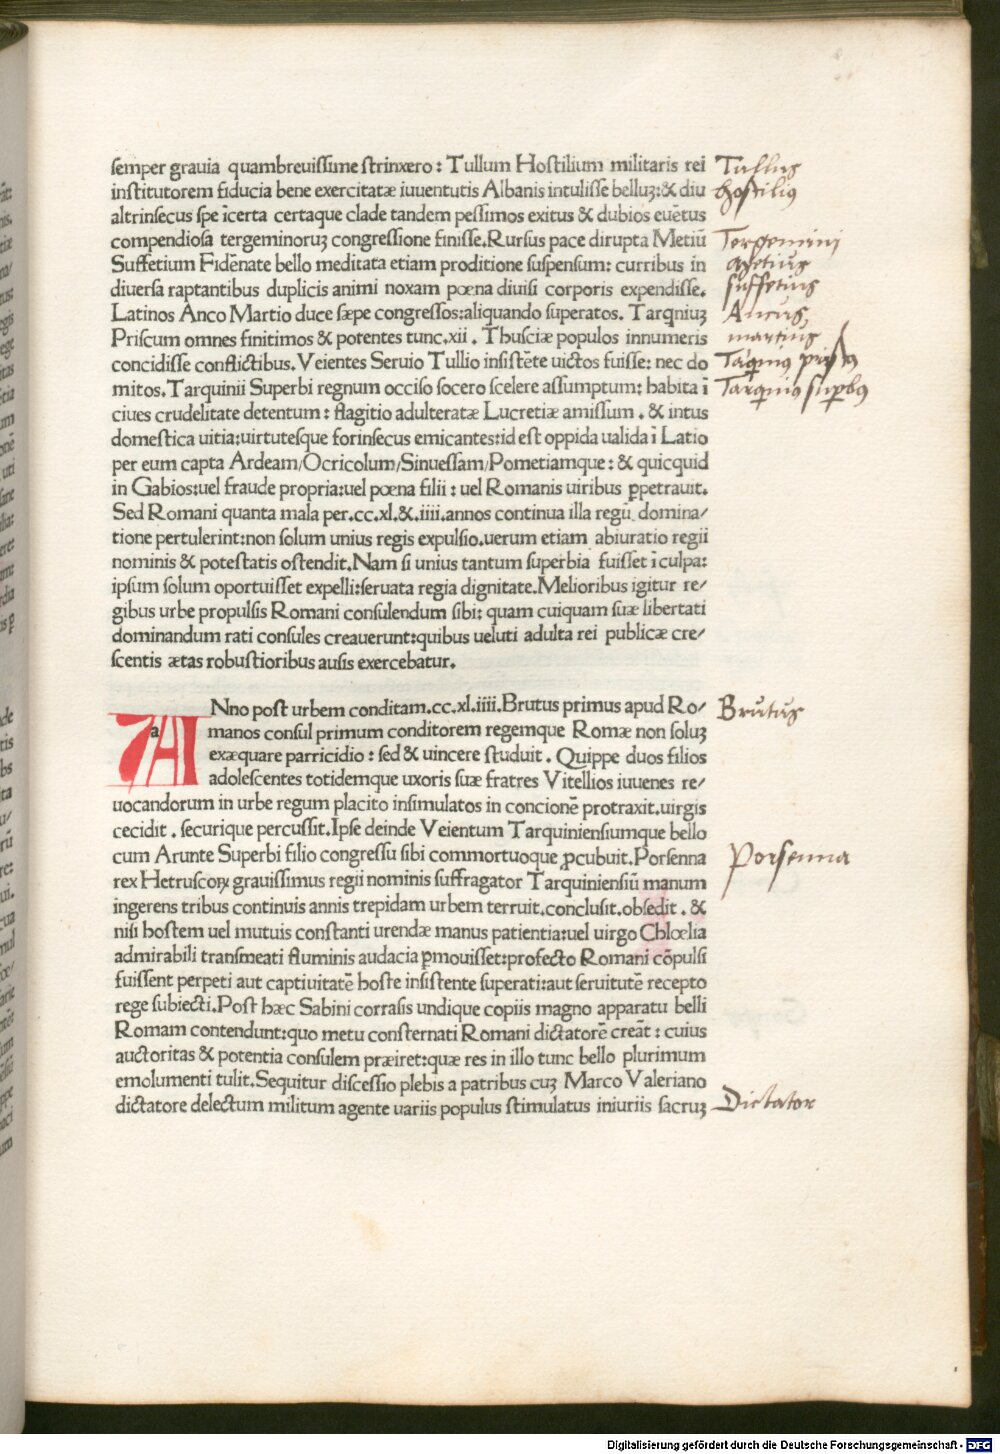 semper grauia quambreuissime strinxero: Tullum Hostilium militaris rei
institutorem fiducia bene exercitatæ iuuentutis Albanis intulisse belluʒ:& diu
altrinsecus spe īcerta certaque clade tandem pessimos exitus & dubios euētus
compendiosa tergeminoruʒ congressione finisse.Rursus pace dirupta Metiū
Suffetium Fidēnate bello meditata etiam proditione suspensum: curribus in
diuersa raptantibus duplicis animi noxam pœna diuisi corporis expendisse.
Latinos Anco Martio duce sæpe congressos:aliquando superatos. Tarqniuʒ
Priscum omnes finitimos & potentes tunc.xii. Thusciæ populos innumeris
concidisse conflictibus. Veientes Seruio Tullio insistēte uictos fuisse: nec do
mitos.Tarquinii Superbi regnum occiso socero scelere assumptum: habita ī
ciues crudelitate detentum: flagitio adulteratæ Lucretiæ amissum. & intus
domestica uitia:uirtutesque forinsecus emicantes:id est oppida ualida ī Latio
per eum capta Ardeam/Ocricolum/Sinuessam/Pometiamque: & quicquid
in Gabios:uel fraude propria:uel pœna filii: uel Romanis uiribus ꝑpetrauit.
Sed Romani quanta mala per.cc.xl.&.iiii.annos continua illa regū domina/
tione pertulerint:non solum unius regis expulsio.uerum etiam abiuratio regii
nominis & potestatis ostendit.Nam si unius tantum superbia fuisset ī culpa:
ipsum solum oportuisset expelli:seruata regia dignitate.Melioribus igitur re/
gibus urbe propulsis Romani consulendum sibi: quam cuiquam suæ libertati
dominandum rati consules creauerunt:quibus ueluti adulta rei publicæ cre/
scentis ætas robustioribus ausis exercebatur.
Tullus
hostilius
Tergemini
metius
suffetius
Ancus
martius
Tarqnius prisc9
Tarqnius supb9
ANno post urbem conditam.cc.xl.iiii.Brutus primus apud Ro/
manos consul primum conditorem regemque Romæ non soluʒ
exæquare parricidio: sed & uincere studuit. Quippe duos filios
adolescentes totidemque uxoris suæ fratres Vitellios iuuenes re/
uocandorum in urbe regum placito insimulatos in concionē protraxit.uirgis
cecidit. securique percussit.Ipse deinde Veientum Tarquiniensiumque bello
cum Arunte Superbi filio congressu sibi commortuoque ꝓcubuit.Porsenna
rex Hetruscoꝝ grauissimus regii nominis suffragator Tarquiniensiū manum
ingerens tribus continuis annis trepidam urbem terruit.conclusit.obsedit. &
nisi hostem uel mutuis constanti urendæ manus patientia:uel uirgo Chlœlia
admirabili transmeati fluminis audacia ꝑmouisset:profecto Romani cōpulsi
fuissent perpeti aut captiuitatē hoste insistente superati:aut seruitutē recepto
rege subiecti.Post hæc Sabini corrasis undique copiis magno apparatu belli
Romam contendunt:quo metu consternati Romani dictatorē creāt: cuius
auctoritas & potentia consulem præiret:quæ res in illo tunc bello plurimum
emolumenti tulit.Sequitur discessio plebis a patribus cuʒ Marco Valeriano
dictatore delectum militum agente uariis populus stimulatus iniuriis sacruʒ
Brutus
Porsenna
Dictator
Digitalisierung gefördert durch die Deutsche Forschungsgemeinschaft - DFG